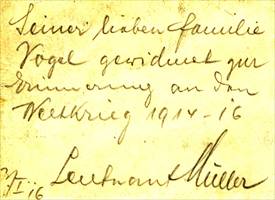 Seiner lieben Familie
Vogel gewidmet zur
Erinnerung an den
Weltkrieg 1914-16
Leutnant Müller
I. 16